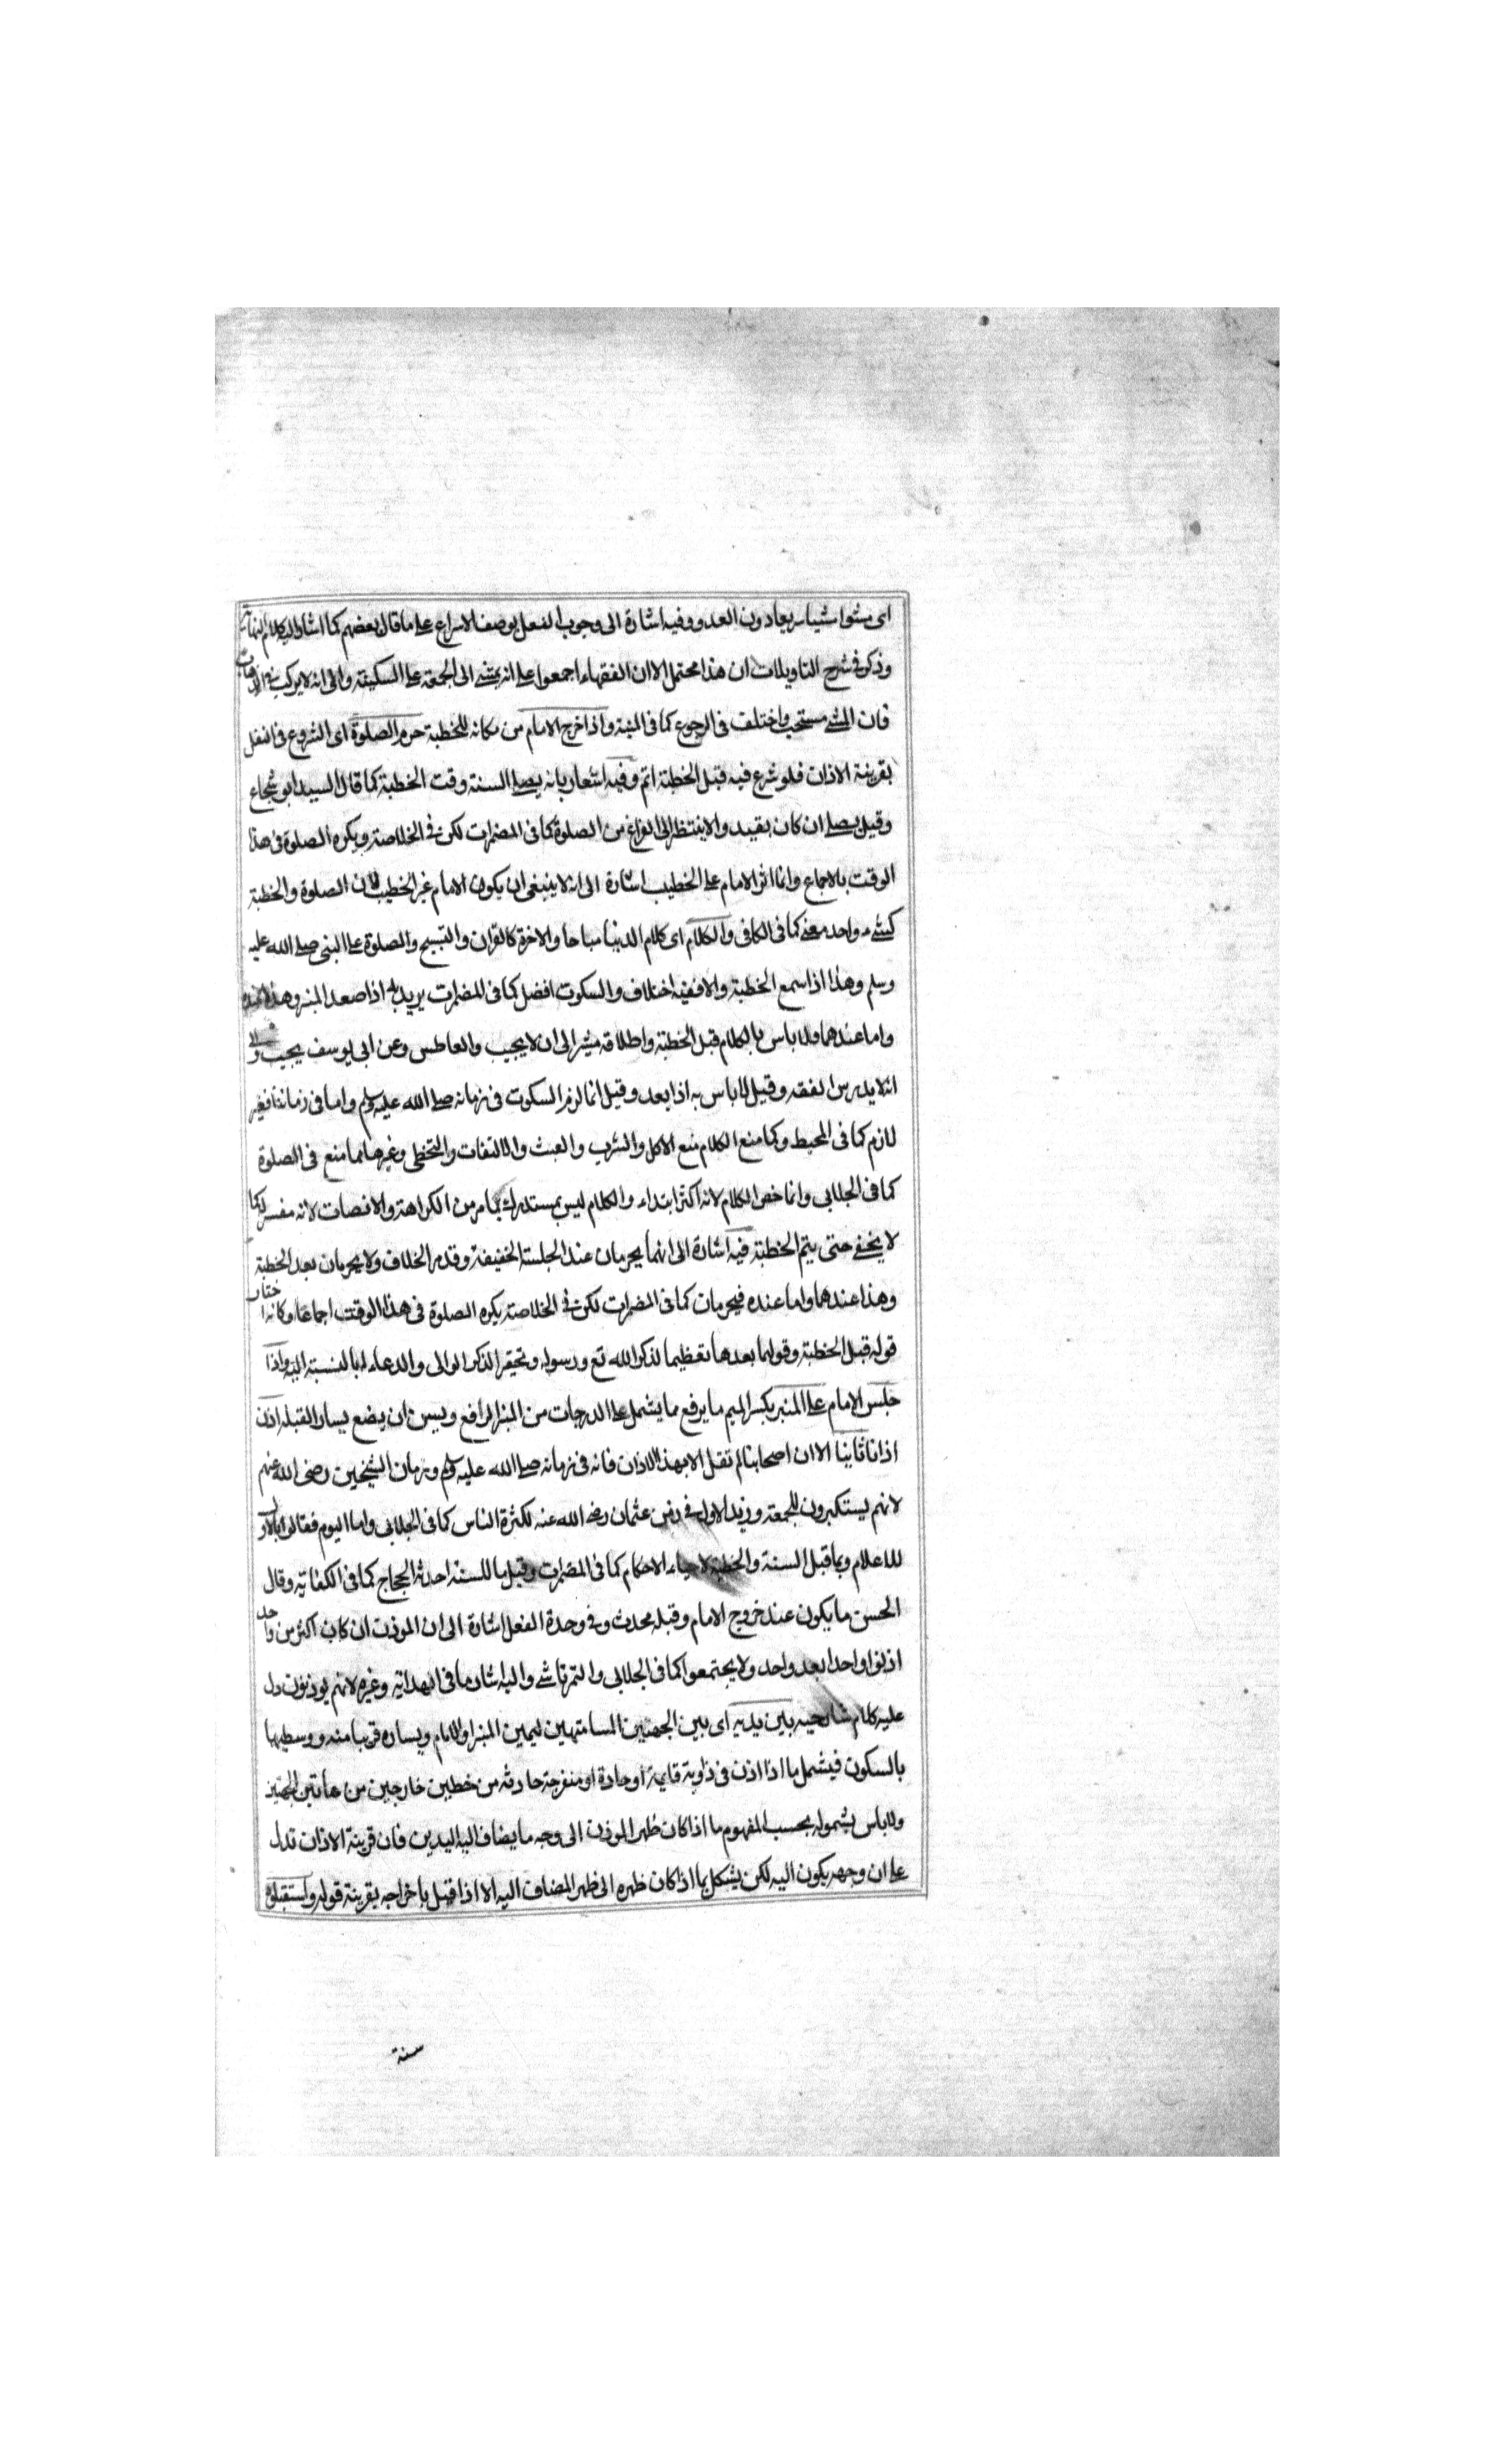 اى مشوا مشيا سريعا دون العدو وفيه اشارة الى وجوب الفعل بوصف الاسراع على ما قال بعضهم كما اشار اليه كلام النهاية
وذكر فى شرح التاويلات ان هذا محتمل الا ان الفقهاء اجمعوا على انه يمشى الى الجمعة على السكينة والى انه لا يركب فى الذهاب
فان المشى مستحب واختلف فى الرجوع كما فى المنية واذا خرج الامام من مكانه للخطبة حرم الصلوة اى الشروع فى النفل
بقرينة الاذان فلو شرع فيه قبل الخطبة اتم وفيه اشعار بانه يصلى السنة وقت الخطبة كما قال السيد ابو شجاع
وقيل يصلى ان كان بقيد والا ينتظر الى الفراغ من الصلوة كما فى المضمرات لكن فى الخلاصة ويكره الصلوة فى هذا
الوقت بالاجماع وانما اثر الامام على الخطيب اشارة الى انه لا ينبغى ان يكون الامام غير الخطيب لان الصلوة والخطبة
كشىء واحد معنى كما فى الكافى والكلام اى كلام الدنيا مباحا والاخرة كالقران والتسبيح والصلوة على النبى صلى الله عليه
وسلم وهذا اذا سمع الخطبة والا ففيه اختلاف والسكوت افضل كما فى المضمرات يريد به اذا صعد المنبر وهذا عنده
واما عندهما ولا باس بالكلام قبل الخطبة واطلاقه مشير الى ان لا يجيب والعاطس وعن ابى يوسف يجيب والى
انه لا يدرس الفقه وقيل لا باس به اذا بعد وقيل انما لزم السكوت فى زمانه صلى الله عليه وسلم واما فى زماننا فغير
لازم كما فى المحيط وكما منع الكلام منع الاكل والشرب والعبث والالتفات والتخطى وغيرها مما منع فى الصلوة
كما فى الجلابى وانما خص الكلام لانه اكثر ابتداء والكلام ليس بمستدرك بما مر من الكراهة والانصات لانه مفسر له كما
لا يخفى حتى يتم الخطبة فيه اشارة الى انهما يحرمان عند الجلسة الخفيفة وقد مر الخلاف ولا يحرمان بعد الخطبة
وهذا عندهما واما عنده فيحرمان كما فى المضمرات لكن فى الخلاصة يكره الصلوة فى هذا الوقت اجماعا وكانه اختار
قوله قبل الخطبة وقولهما بعدها تعظيما لذكر الله تع ورسوله وتحقيرا لذكر الوالى والدعاء له بالنسبة اليه واذا
جلس الامام على المنبر بكسر الميم ما يرفع مما يشمل على الدرجات من المنبر الرافع ويسن ان يضع يسار القبلة اذن
اذانا ثانيا الا ان اصحابنا لم تقل الا بهذا الاذان فانه فى زمانه صلى الله عليه وسلم وزمان الشيخين رضى الله عنهم
لانهم يستكبرون للجمعة وزيد الاول فى زمن عثمان رضى الله عنه لكثرة الناس كما فى الجلابى واما اليوم فقالوا بالاول
للاعلام وبما قبل السنة والخطبة لاحياء الاحكام كما فى المضمرات وقيل ما للسنة احدثه الحجاج كما فى الكفاية وقال
الحسن ما يكون عند خروج الامام وقبله محدث وفى وحدة الفعل اشارة الى ان الموذن ان كان اكثر من واحد
اذنوا واحدا بعد واحد ولا يجتمعوا كما فى الجلابى والتمرتاشى واليه اشار ما فى الهداية وغيره لانهم يوذنون دل
عليه كلام شارحيه بين يديه اى بين الجهتين المسامتتين ليمين المنبر او الامام ويساره قريبا منه ووسطهما
بالسكون فيشمل ما اذا اذن فى زاوية قايمة او حادة او منفرجة حادثة من خطين خارجين من هاتين الجهتين
ولا باس بشموله بحسب المفهوم ما اذا كان ظهر الموذن الى وجه ما يضاف اليه اليدين فان قرينة الاذان تدل
على ان وجهه يكون اليه لكن يشكل بما اذا كان ظهره الى ظهر المضاف اليه الا اذا قيل باخراجه بقرينة قوله واستقبلوه
سنة